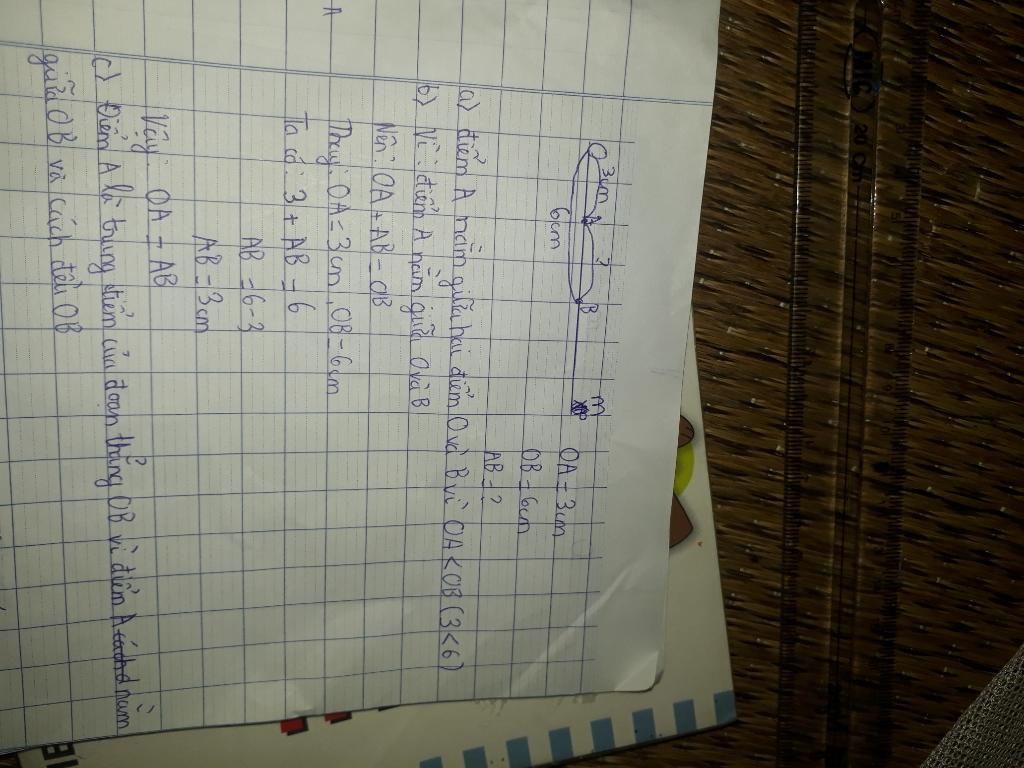 O 3cm A 3 B m
6cm
OA = 3cm
OB = 6cm
AB = ?
a) điểm A nằm giữa hai điểm O và B vì OA < OB (3 < 6)
b) Vì: điểm A nằm giữa O và B
Nên: OA + AB = OB
Thay: OA = 3cm, OB = 6cm
Ta có: 3 + AB = 6
AB = 6 - 3
AB = 3cm
Vậy: OA = AB
c) Điểm A là trung điểm của đoạn thẳng OB vì điểm A nằm
giữa OB và cách đều OB
A